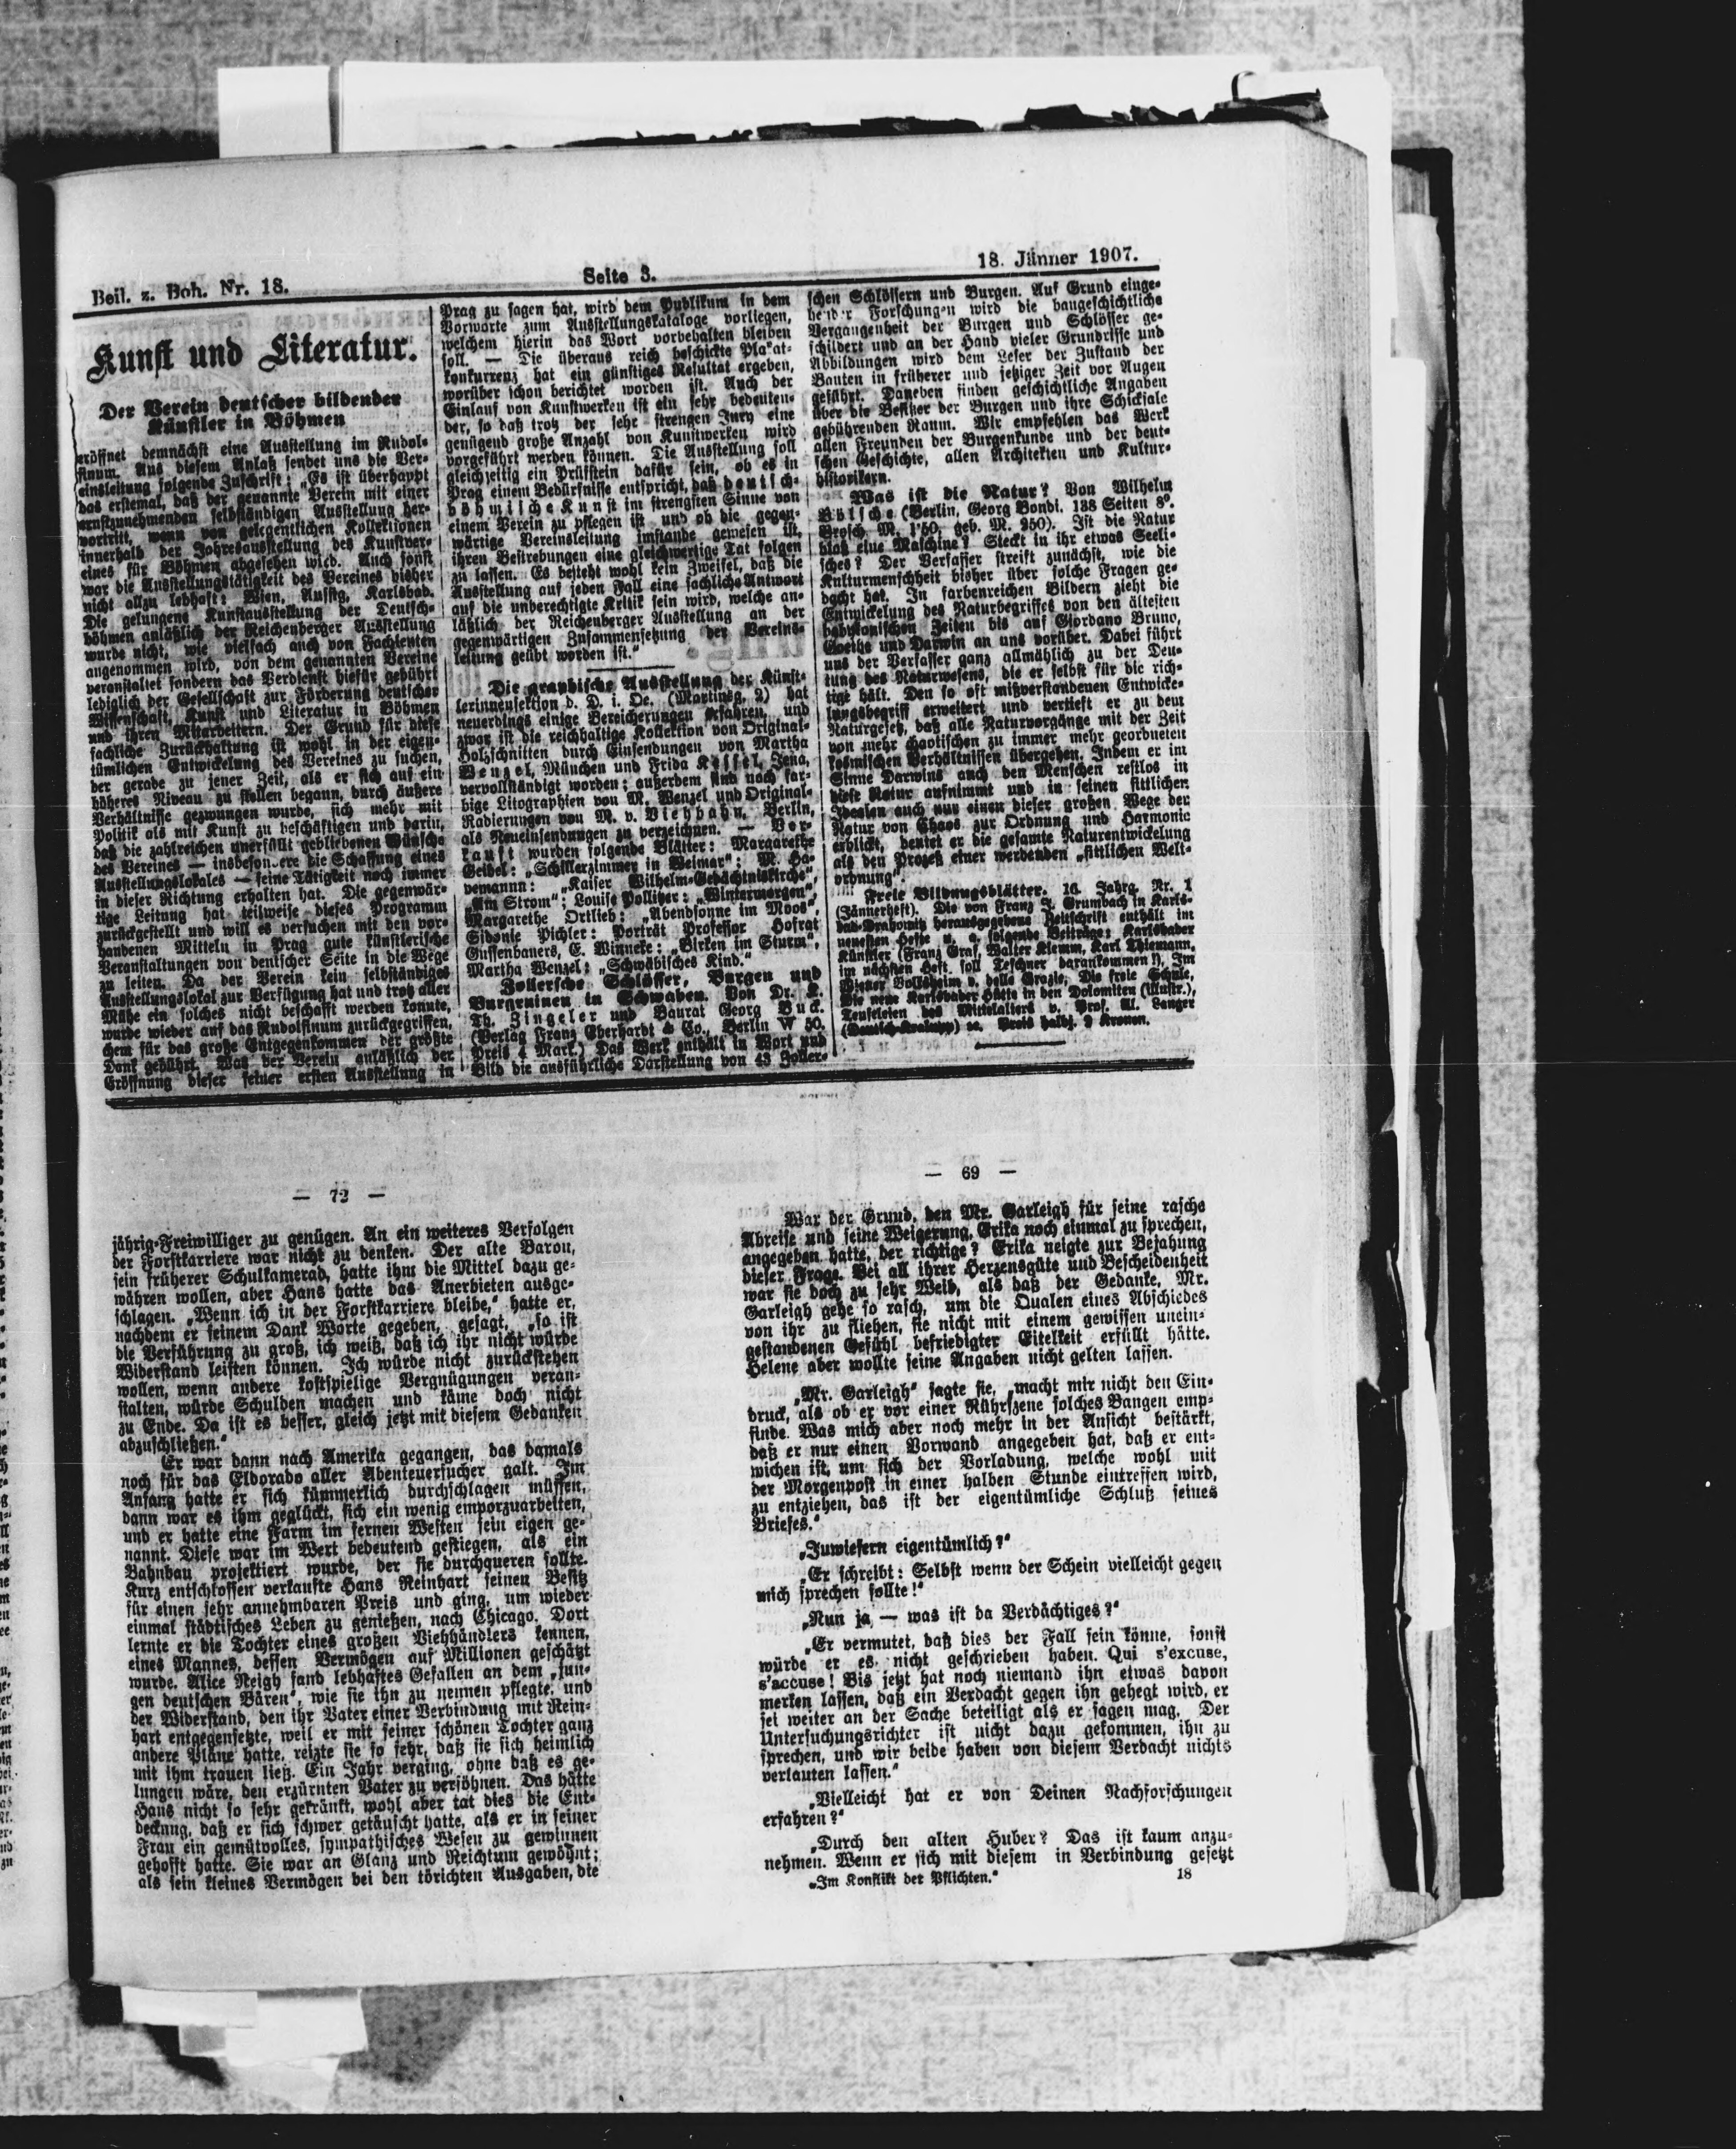 Beil. z. Boh. Nr. 18.
Seite 3.
18. Jänner 1907.
Kunst und Literatur.
Der Verein deutscher bildender
Künstler in Böhmen
eröffnet demnächst eine Ausstellung im Rudol-
finum. Aus diesem Anlaß sendet uns die Ver-
einsleitung folgende Zuschrift: „Es ist überhaupt
das erstemal, daß der genannte Verein mit einer
ernstzunehmenden selbständigen Ausstellung her-
vortritt, wenn von gelegentlichen Kollektionen
innerhalb der Jahresausstellung des Kunstver-
eines für Böhmen abgesehen wird. Auch sonst
war die Ausstellungstätigkeit des Vereines bisher
nicht allzu lebhaft: Wien, Aussig, Karlsbad.
Die gelungene Kunstausstellung der Deutsch-
böhmen anläßlich der Reichenberger Ausstellung
wurde nicht, wie vielfach auch von Fachleuten
angenommen wird, von dem genannten Vereine
veranstaltet sondern das Verdienst hiefür gebührt
lediglich der Gesellschaft zur Förderung deutscher
Wissenschaft, Kunst und Literatur in Böhmen
und ihren Mitarbeitern. Der Grund für diese
sachliche Zurückhaltung ist wohl in der eigen-
tümlichen Entwickelung des Vereines zu suchen,
der gerade zu jener Zeit, als er sich auf ein
höheres Niveau zu stellen begann, durch äußere
Verhältnisse gezwungen wurde, sich mehr mit
Politik als mit Kunst zu beschäftigen und darin,
daß die zahlreichen unerfüllt gebliebenen Wünsche
des Vereines — insbesondere die Schaffung eines
Ausstellungslokales — seine Tätigkeit noch immer
in dieser Richtung erhalten hat. Die gegenwär-
tige Leitung hat teilweise dieses Programm
zurückgestellt und will es versuchen mit den vor-
handenen Mitteln in Prag gute künstlerische
Veranstaltungen von deutscher Seite in die Wege
zu leiten. Da der Verein kein selbständiges
Ausstellungslokal zur Verfügung hat und trotz aller
Mühe ein solches nicht beschafft werden konnte,
wurde wieder auf das Rudolfinum zurückgegriffen,
dem für das große Entgegenkommen der größte
Dank gebührt. Was der Verein anläßlich der
Eröffnung dieser seiner ersten Ausstellung in
Prag zu sagen hat, wird dem Publikum in dem
Vorworte zum Ausstellungskataloge vorliegen,
welchem hierin das Wort vorbehalten bleiben
soll. — Die überaus reich beschickte Plakat-
konkurrenz hat ein günstiges Resultat ergeben,
worüber schon berichtet worden ist. Auch der
Einlauf von Kunstwerken ist ein sehr bedeuten-
der, so daß trotz der sehr strengen Jury eine
genügend große Anzahl von Kunstwerken wird
vorgeführt werden können. Die Ausstellung soll
gleichzeitig ein Prüfstein dafür sein, ob es in
Prag einem Bedürfnisse entspricht, daß deutsch-
böhmische Kunst im strengsten Sinne von
einem Verein zu pflegen ist und ob die gegen-
wärtige Vereinsleitung imstande gewesen ist,
ihren Bestrebungen eine gleichwertige Tat folgen
zu lassen. Es besteht wohl kein Zweifel, daß die
Ausstellung auf jeden Fall eine sachliche Antwort
auf die unberechtigte Kritik sein wird, welche an-
läßlich der Reichenberger Ausstellung an der
gegenwärtigen Zusammensetzung der Vereins-
leitung geübt worden ist.“
Die graphische Ausstellung der Künst-
lerinnensektion d. D. i. Oe. (Martinsg. 2) hat
neuerdings einige Bereicherungen erfahren, und
zwar ist die reichhaltige Kollektion von Original-
Holzschnitten durch Einsendungen von Martha
Wenzel, München und Frida Kessel, Jena,
vervollständigt worden; außerdem sind noch far-
bige Litographien von M. Wenzel und Original-
Radierungen von M. v. Viehbahn, Berlin,
als Neueinsendungen zu verzeichnen. — Ver-
kauft wurden folgende Blätter: Margarethe
Geibel: „Schillerzimmer in Weimar“; M. Ha-
vemannn: „Kaiser Wilhelm-Gedächtniskirche“,
„Am Strom“; Louise Pollitzer: „Wintermorgen“,
Margarethe Ortlieb: „Abendsonne im Moos“,
Sidonie Pichler: Porträt Professor Hofrat
Gussenbauers, E. Winneke: „Birken im Sturm“,
Martha Wenzel: „Schwäbisches Kind.“
Zollersche Schlösser, Burgen und
Burgruinen in Schwaben. Von Dr. K.
Th. Zingeler und Baurat Georg Buck.
(Verlag Franz Eberhardt & Co., Berlin W 50.
Preis 4 Mark.) Das Werk enthält in Wort und
Bild die ausführliche Darstellung von 43 Zoller-
schen Schlössern und Burgen. Auf Grund einge-
hender Forschungen wird die baugeschichtliche
Vergangenheit der Burgen und Schlösser ge-
schildert und an der Hand vieler Grundrisse und
Abbildungen wird dem Leser der Zustand der
Bauten in früherer und jetziger Zeit vor Augen
geführt. Daneben finden geschichtliche Angaben
über die Besitzer der Burgen und ihre Schicksale
gebührenden Raum. Wir empfehlen das Werk
allen Freunden der Burgenkunde und der deut-
schen Geschichte, allen Architekten und Kultur-
historikern.
Was ist die Natur? Von Wilhelm
Bölsche (Berlin, Georg Bondi. 138 Seiten 8°.
Brosch M. 1'50, geb. M. 250). Ist die Natur
bloß eine Maschine? Steckt in ihr etwas Seeli-
sches? Der Verfasser streift zunächst, wie die
Kulturmenschheit bisher über solche Fragen ge-
dacht hat. In farbenreichen Bildern zieht die
Entwickelung des Naturbegriffes von den ältesten
babylonischen Zeiten bis auf Giordano Bruno,
Goethe und Darwin an uns vorüber. Dabei führt
uns der Verfasser ganz allmählich zu der Deu-
tung des Naturwesens, die er selbst für die rich-
tige hält. Den so oft mißverstandenen Entwicke-
lungsbegriff erweitert und vertieft er zu dem
Naturgesetz, daß alle Naturvorgänge mit der Zeit
von mehr chaotischen zu immer mehr geordneten
kosmischen Verhältnissen übergehen. Indem er im
Sinne Darwins auch den Menschen restlos in
diese Natur aufnimmt und in seinen sittlichen
Idealen auch nur einen dieser großen Wege der
Natur von Chaos zur Ordnung und Harmonie
erblickt, deutet er die gesamte Naturentwickelung
als den Prozeß einer werdenden „sittlichen Welt-
ordnung“.
Freie Bildungsblätter. 16. Jahrg. Nr. 1
(Jännerheft). Die von Franz J. Grumbach in Karls-
bad-Drahowitz herausgegebene Zeitschrift enthält im
neuesten Hefte u. a. folgende Beiträge: Karlsbader
Künstler (Franz Graf, Walter Klemm, Karl Thiemann,
im nächsten Heft soll Teschner darankommen!), Im
Wiener Volksheim v. delle Grazie, Die freie Schule,
Die neue Karlsbader Hütte in den Dolomiten (Illustr.),
Teufeleien des Mittelalters v. Prof. W. Langer
(Deutsch-Kralupp) ec. Preis halbj. 2 Kronen.
— 72 —
jährig-Freiwilliger zu genügen. An ein weiteres Verfolgen
der Forstkarriere war nicht zu denken. Der alte Baron,
sein früherer Schulkamerad, hatte ihm die Mittel dazu ge-
währen wollen, aber Hans hatte das Anerbieten ausge-
schlagen. „Wenn ich in der Forstkarriere bleibe,“ hatte er,
nachdem er seinem Dank Worte gegeben, gesagt, „so ist
die Verführung zu groß, ich weiß, daß ich ihr nicht würde
Widerstand leisten können. Ich würde nicht zurückstehen
wollen, wenn andere kostspielige Vergnügungen veran-
stalten, würde Schulden machen und käme doch nicht
zu Ende. Da ist es besser, gleich jetzt mit diesem Gedanken
abzuschließen.“
Er war dann nach Amerika gegangen, das damals
noch für das Eldorado aller Abenteuersucher galt. Im
Anfang hatte er sich kümmerlich durchschlagen müssen,
dann war es ihm geglückt, sich ein wenig emporzuarbeiten,
und er hatte eine Farm im fernen Westen sein eigen ge-
nannt. Diese war im Wert bedeutend gestiegen, als ein
Bahnbau projektiert wurde, der sie durchqueren sollte.
Kurz entschlossen verkaufte Hans Reinhart seinen Besitz
für einen sehr annehmbaren Preis und ging, um wieder
einmal städtisches Leben zu genießen, nach Chicago. Dort
lernte er die Tochter eines großen Viehhändlers kennen,
eines Mannes, dessen Vermögen auf Millionen geschätzt
wurde. Alice Reigh fand lebhaftes Gefallen an dem „jun-
gen deutschen Bären“, wie sie ihn zu nennen pflegte, und
der Widerstand, den ihr Vater einer Verbindung mit Rein-
hart entgegensetzte, weil er mit seiner schönen Tochter ganz
andere Pläne hatte, reizte sie so sehr, daß sie sich heimlich
mit ihm trauen ließ. Ein Jahr verging, ohne daß es ge-
lungen wäre, den erzürnten Vater zu versöhnen. Das hätte
Hans nicht so sehr gekränkt, wohl aber tat dies die Ent-
deckung, daß er sich schwer getäuscht hatte, als er in seiner
Frau ein gemütvolles, sympathisches Wesen zu gewinnen
gehofft hatte. Sie war an Glanz und Reichtum gewöhnt;
als sein kleines Vermögen bei den törichten Ausgaben, die
— 69 —
War der Grund, den Mr. Garleigh für seine rasche
Abreise und seine Weigerung, Erika noch einmal zu sprechen,
angegeben hatte, der richtige? Erika neigte zur Bejahung
dieser Frage. Bei all ihrer Herzensgüte und Bescheidenheit
war sie doch zu sehr Weib, als daß der Gedanke, Mr.
Garleigh gehe so rasch, um die Qualen eines Abschiedes
von ihr zu fliehen, sie nicht mit einem gewissen unein-
gestandenen Gefühl befriedigter Eitelkeit erfüllt hätte.
Helene aber wollte seine Angaben nicht gelten lassen.
„Mr. Garleigh“ sagte sie, „macht mir nicht den Ein-
druck, als ob er vor einer Rührszene solches Bangen emp-
finde. Was mich aber noch mehr in der Ansicht bestärkt,
daß er nur einen Vorwand angegeben hat, daß er ent-
wichen ist, um sich der Vorladung, welche wohl mit
der Morgenpost in einer halben Stunde eintreffen wird,
zu entziehen, das ist der eigentümliche Schluß seines
Briefes.“
„Inwiefern eigentümlich?“
„Er schreibt: Selbst wenn der Schein vielleicht gegen
mich sprechen sollte!“
„Nun ja — was ist da Verdächtiges?“
„Er vermutet, daß dies der Fall sein könne, sonst
würde er es nicht geschrieben haben. Qui s'excuse,
s'accuse! Bis jetzt hat noch niemand ihn etwas davon
merken lassen, daß ein Verdacht gegen ihn gehegt wird, er
sei weiter an der Sache beteiligt als er sagen mag. Der
Untersuchungsrichter ist nicht dazu gekommen, ihn zu
sprechen, und wir beide haben von diesem Verdacht nichts
verlauten lassen.“
„Vielleicht hat er von Deinen Nachforschungen
erfahren?“
„Durch den alten Huber? Das ist kaum anzu-
nehmen. Wenn er sich mit diesem in Verbindung gesetzt
„Im Konflikt der Pflichten.“
18